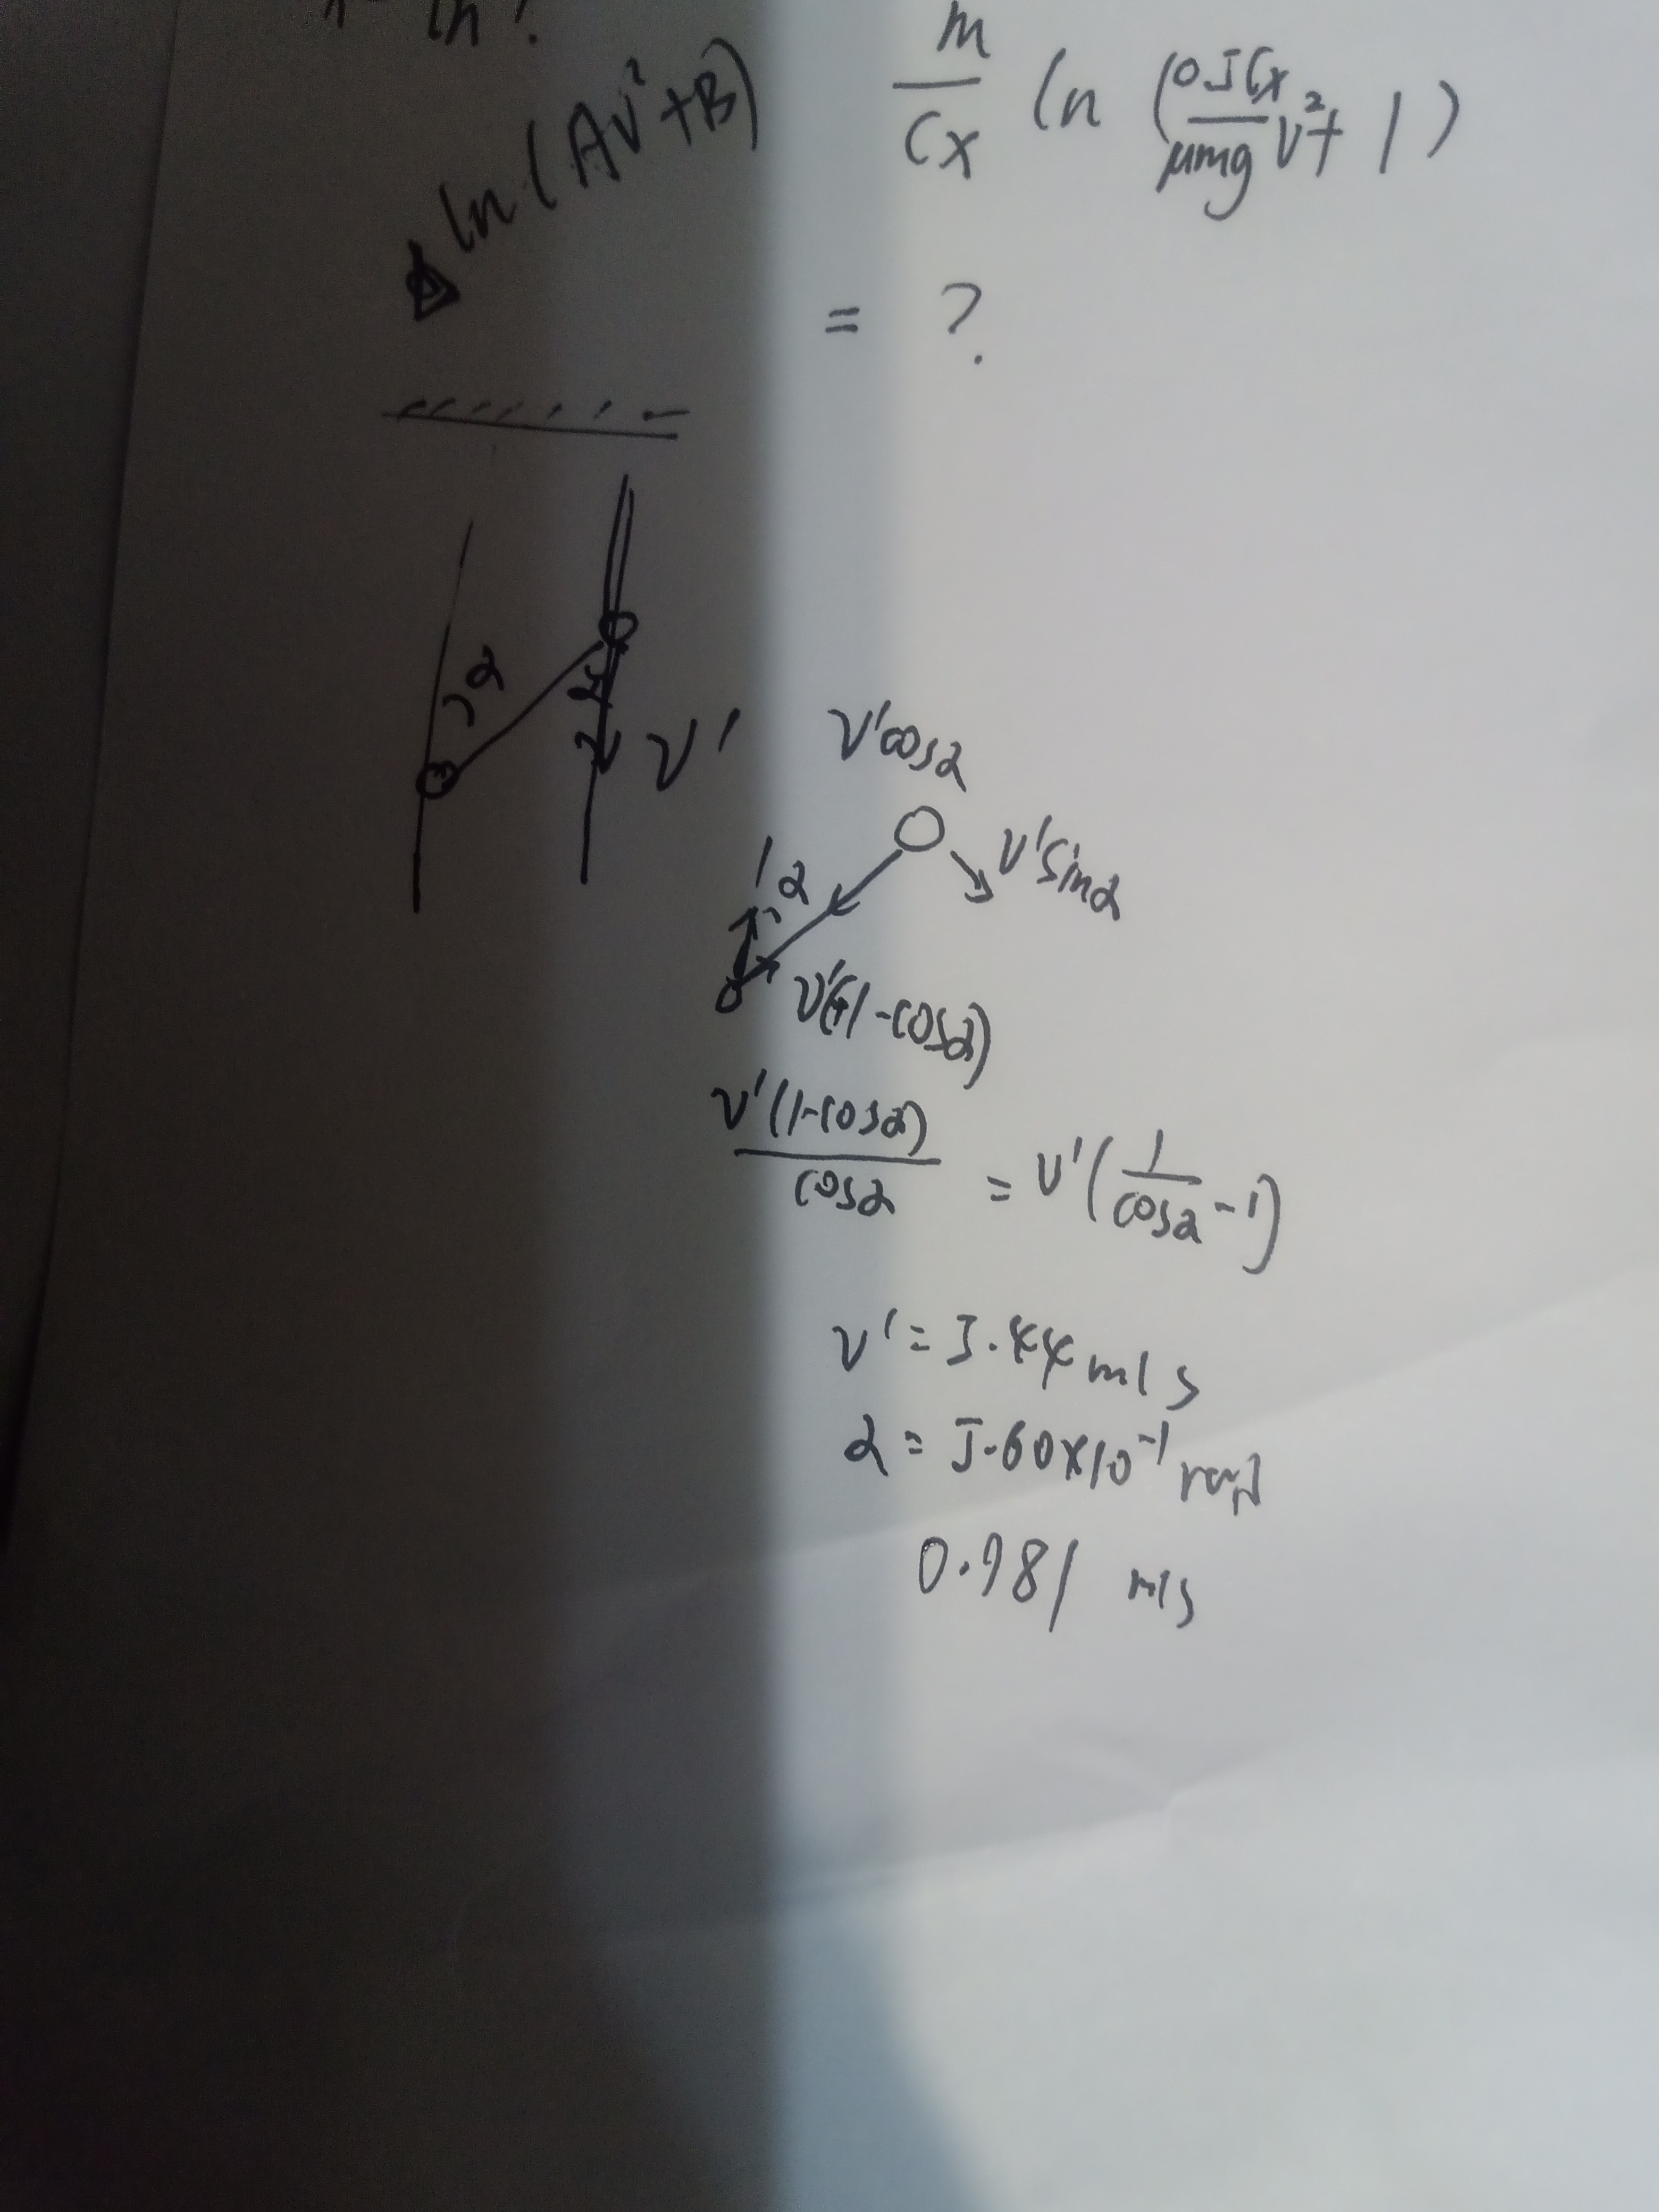 ln(AV²+B)
m/Cx ln (0.5Cx/μmg V²+1)
= ?
α
α
V'
V'cosα
V'sinα
α
V'(1-cosα)
V'(1-cosα)/cosα = V'(1/cosα -1)
V'=5.44m/s
α=5.60×10⁻¹rad
0.981 m/s